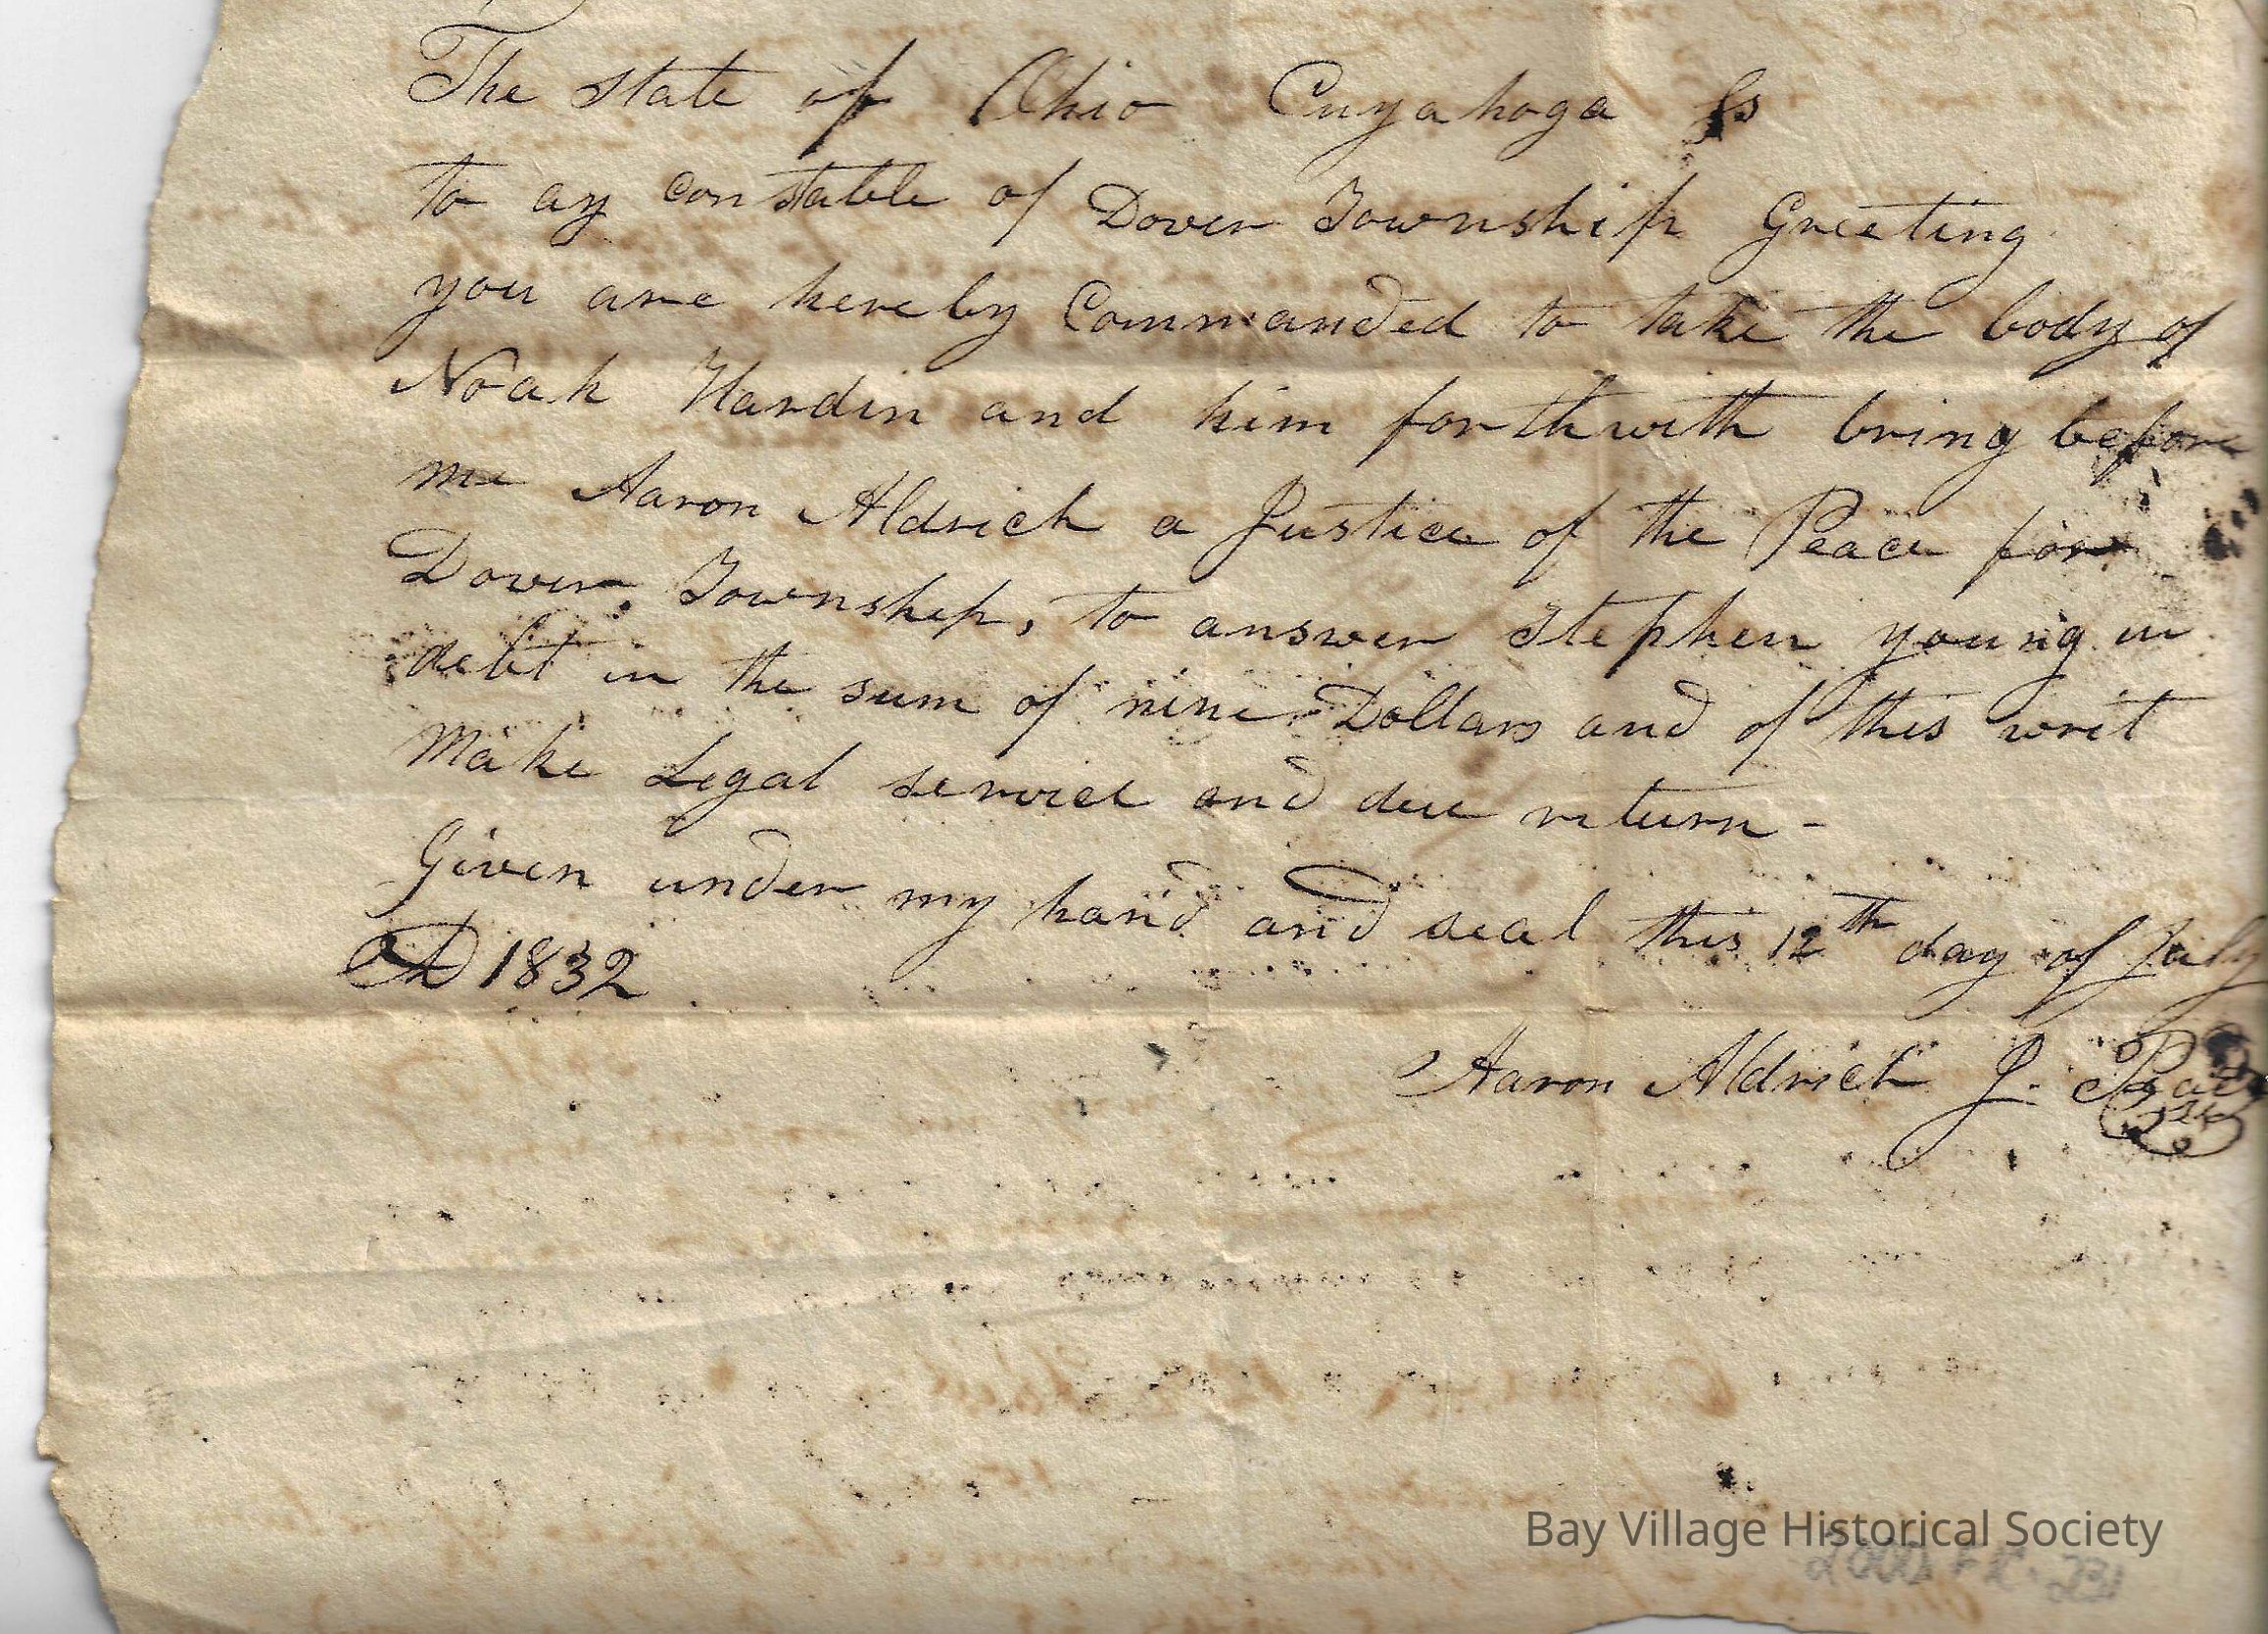 The State of Ohio Cuyahoga Ss
to ay constable of Dover Township Greeting
you are hereby Commanded to take the body of
Noah Hardin and him forthwith bring before
me Aaron Aldrich a Justice of the Peace for
Dover Township, to answer Stephen young in
debt in the sum of nine Dollars and of this writ
Make Legal service and due return -
Given under my hand and seal this 12th day of July
AD 1832
Aaron Aldrich J. Peace
Bay Village Historical Society